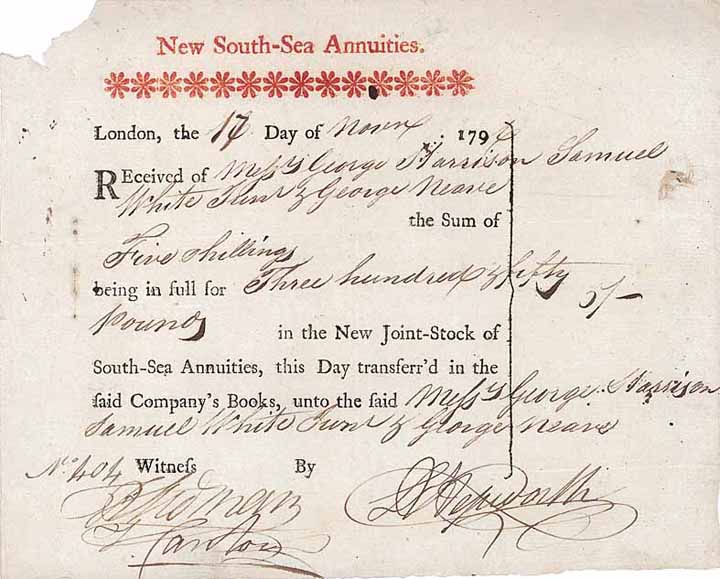 New South-Sea Annuities.
London, the 17 Day of Novr 179
REceived of Messrs George Harrison Samuel
White Junr & George Neave
the Sum of
Five shillings
being in full for Three hundred & fifty 5/-
Pounds in the New Joint-Stock of
South-Sea Annuities, this Day transferr'd in the
ſaid Company's Books, unto the ſaid Messrs George Harrison
Samuel White Junr & George Neave
No. 404 Witneſs By